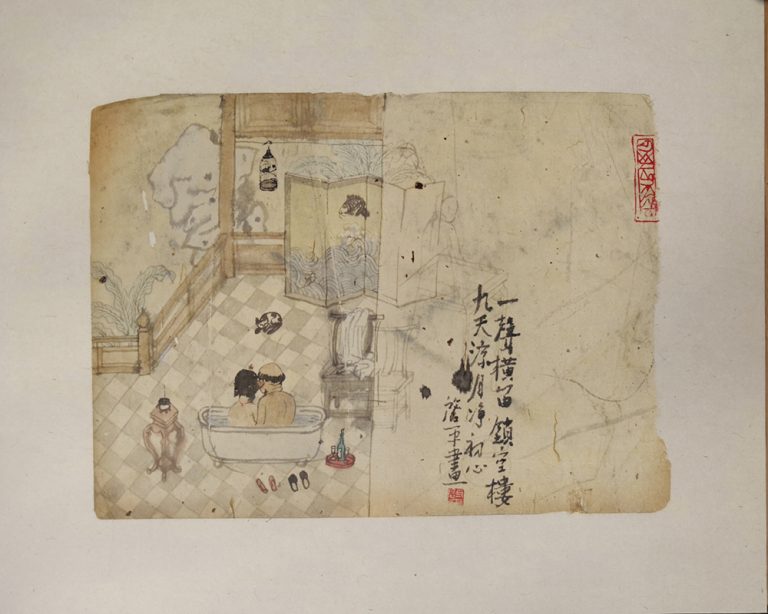 一聲橫笛鎖空樓
九天涼月净初心
平畫